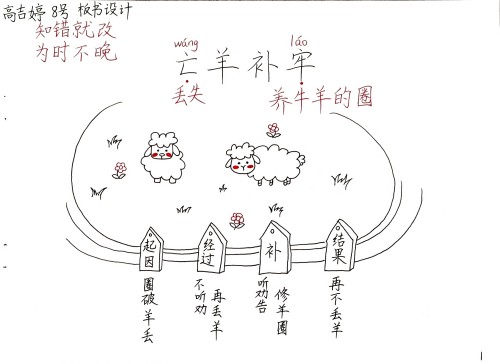 高吉婷 8号 板书设计
知错就改
为时不晚
wáng láo
亡羊补牢
丢失 养牛羊的圈
起因
经过
补
结果
圈破羊丢
不听劝
再丢羊
听劝告
修羊圈
再不丢羊